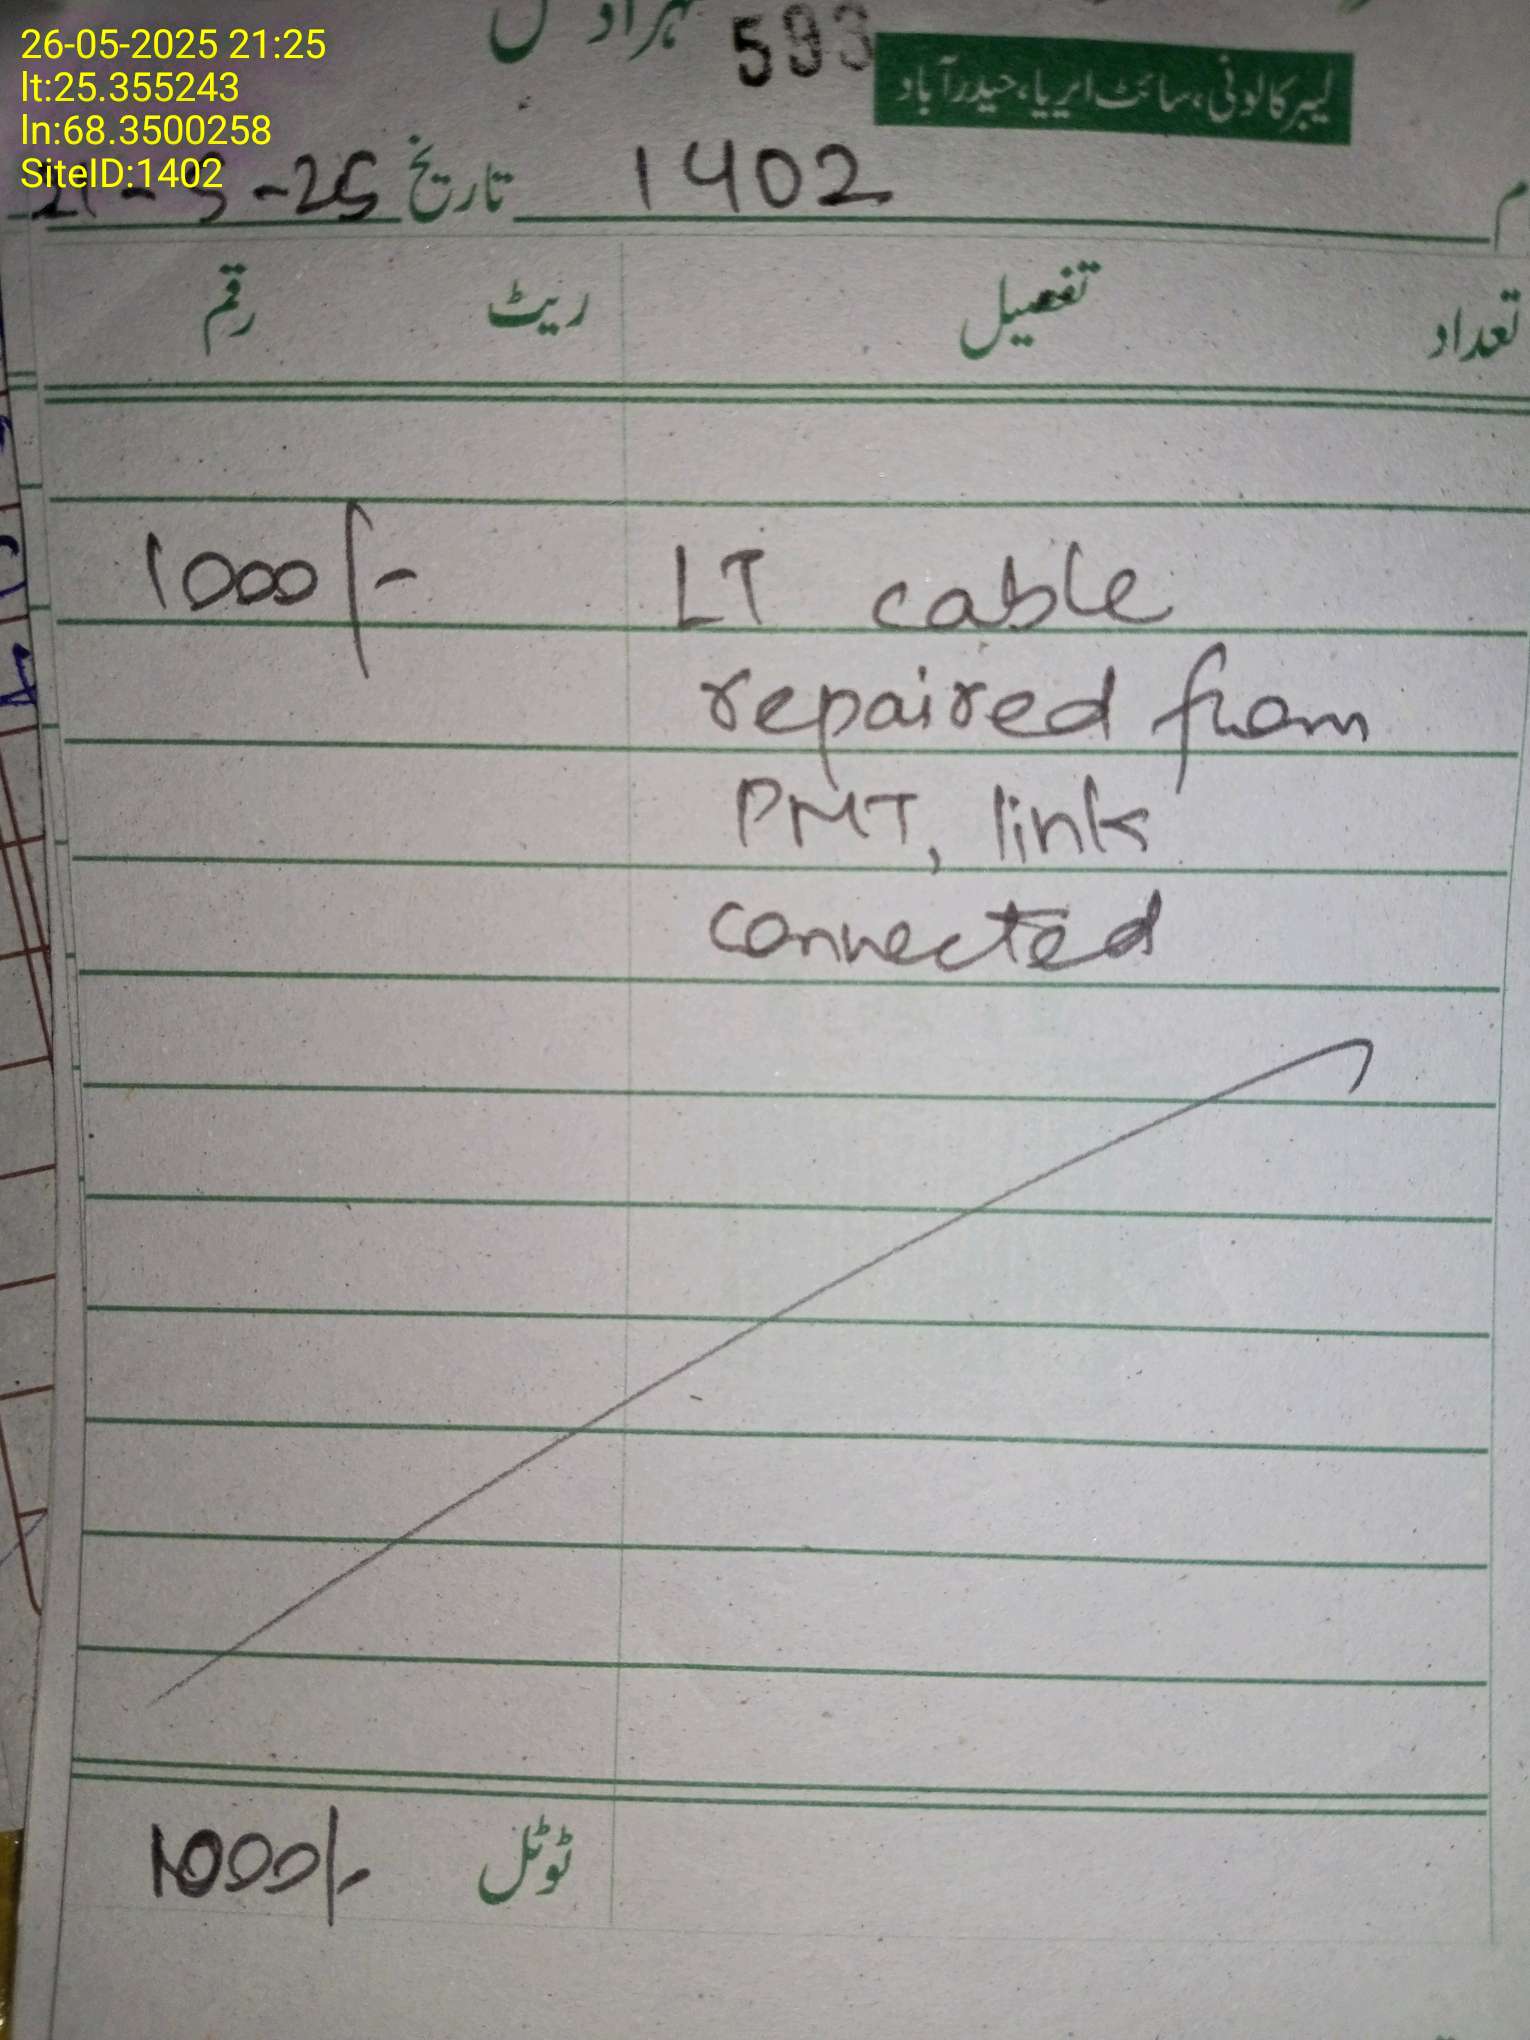 26-05-2025 21:25
lt:25.355243
ln:68.3500258
SiteID:1402
593
لیبر کالونی، سائٹ ایریا، حیدرآباد
1402 تاریخ
تعداد تفصیل ریٹ رقم
LT cable 1000/-
repaired from
PMT, link
connected
ٹوٹل 1000/-